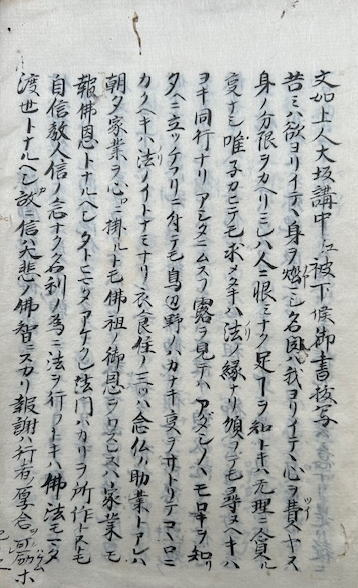 文如上人大坂講中ヱ被下候御書抜写
苦ミハ欲ヨリイテヽ身ヲ燃シ名因ハ我ヨリイテヽ心ヲ費ヤス
身ノ分限ヲカヘリミレハ人ニ恨ミナク足コヲ知トキハ无理ニ貪ル
変ナシ唯子カヒテモ求メタキハ法ノ縁ナリ頒スデモ尋ヌヘキハ
ヨキ同行ナリアシタニムスフ露ヲ見テハアダシノヽモロキヲ知リ
夕ヘニ立ツケフリニ付テモ鳥辺野ノハカナキ変ヲサトリテコヽロニ
カクヘキハ法ノイトナミナリ衣食住ノ三ツハ念仏ノ助業トアレハ
朝夕家業ヲ心ニ掛ルトモ佛祖ノ御恩ヲワスレスハ家業モ
報佛恩トナルヘシタトヒマタアケクレ法門ハカリヲ所作トスモ
自信教人信ノ念ナク名利ノ為ニ法ヲ行フトキハ佛法モマタ
渡世トナルヘシ故ニ信ハ大悲ノ佛智ニスカリ報謝ハ行者ノ厚念